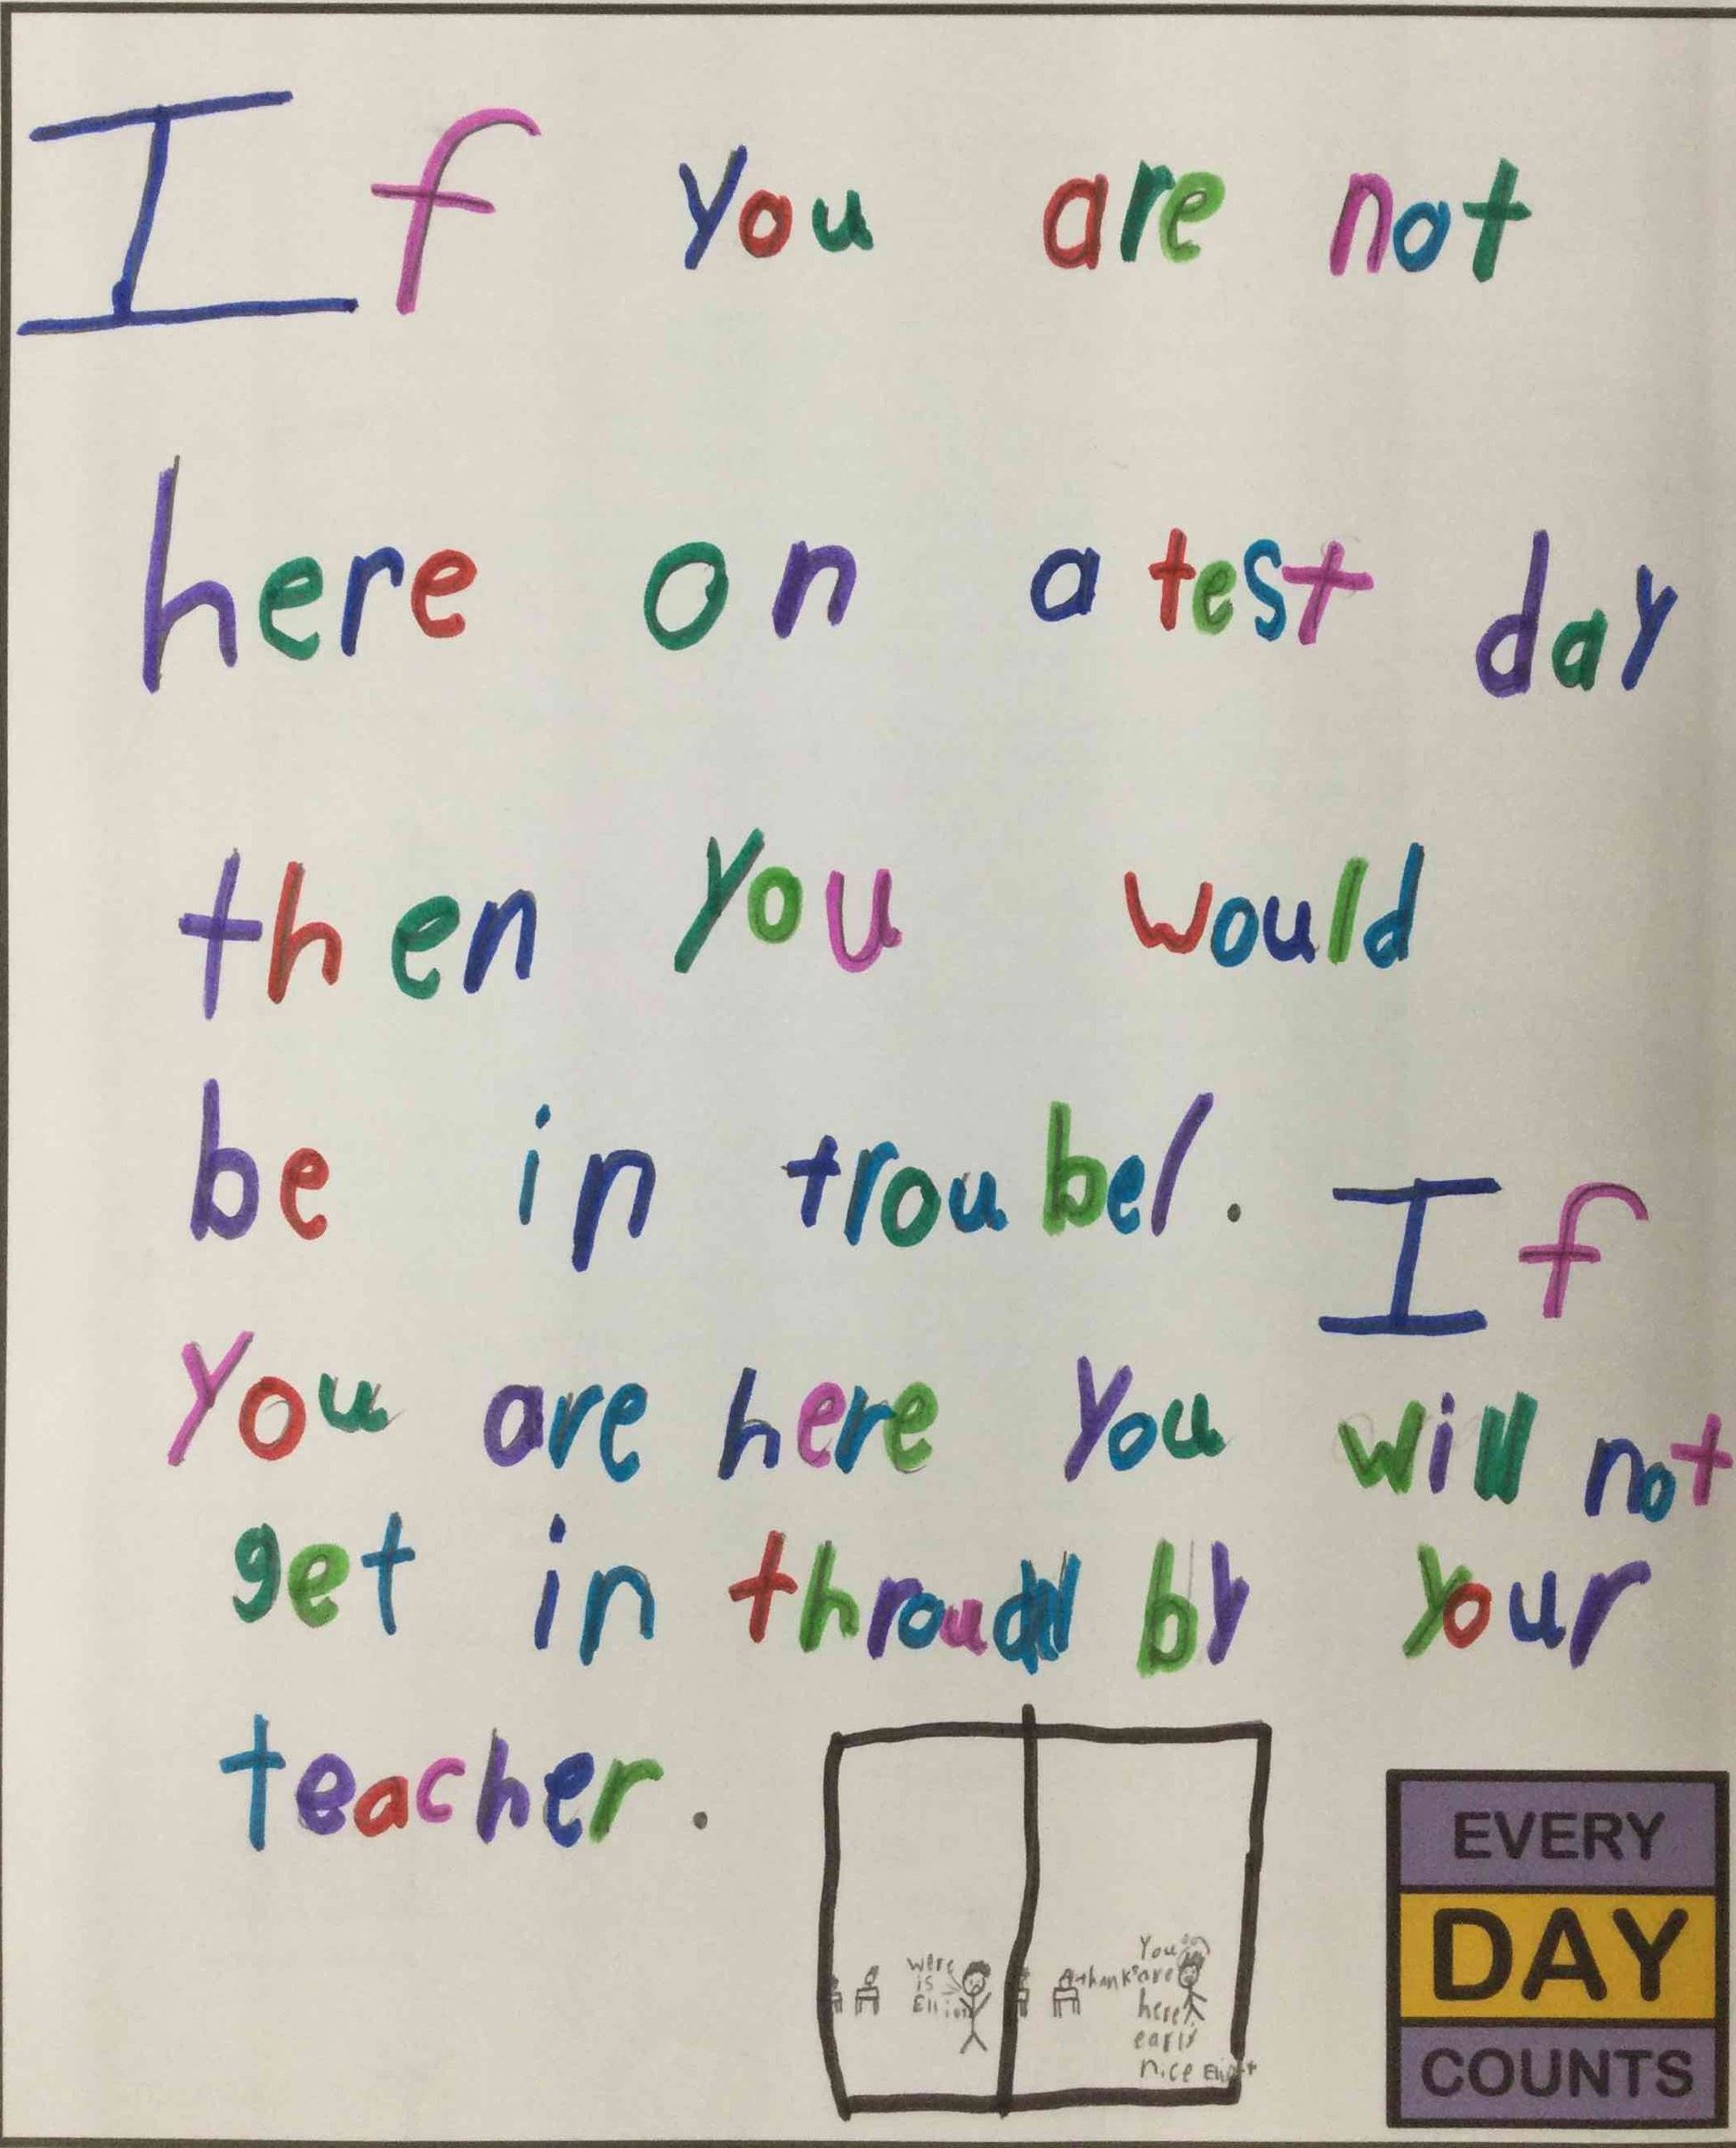 If you are not
here on a test day
then you would
be in troubel. If
you are here you will not
get in by your
teacher.
were
is
You
thanks are
here
early
nice
EVERY
DAY
COUNTS